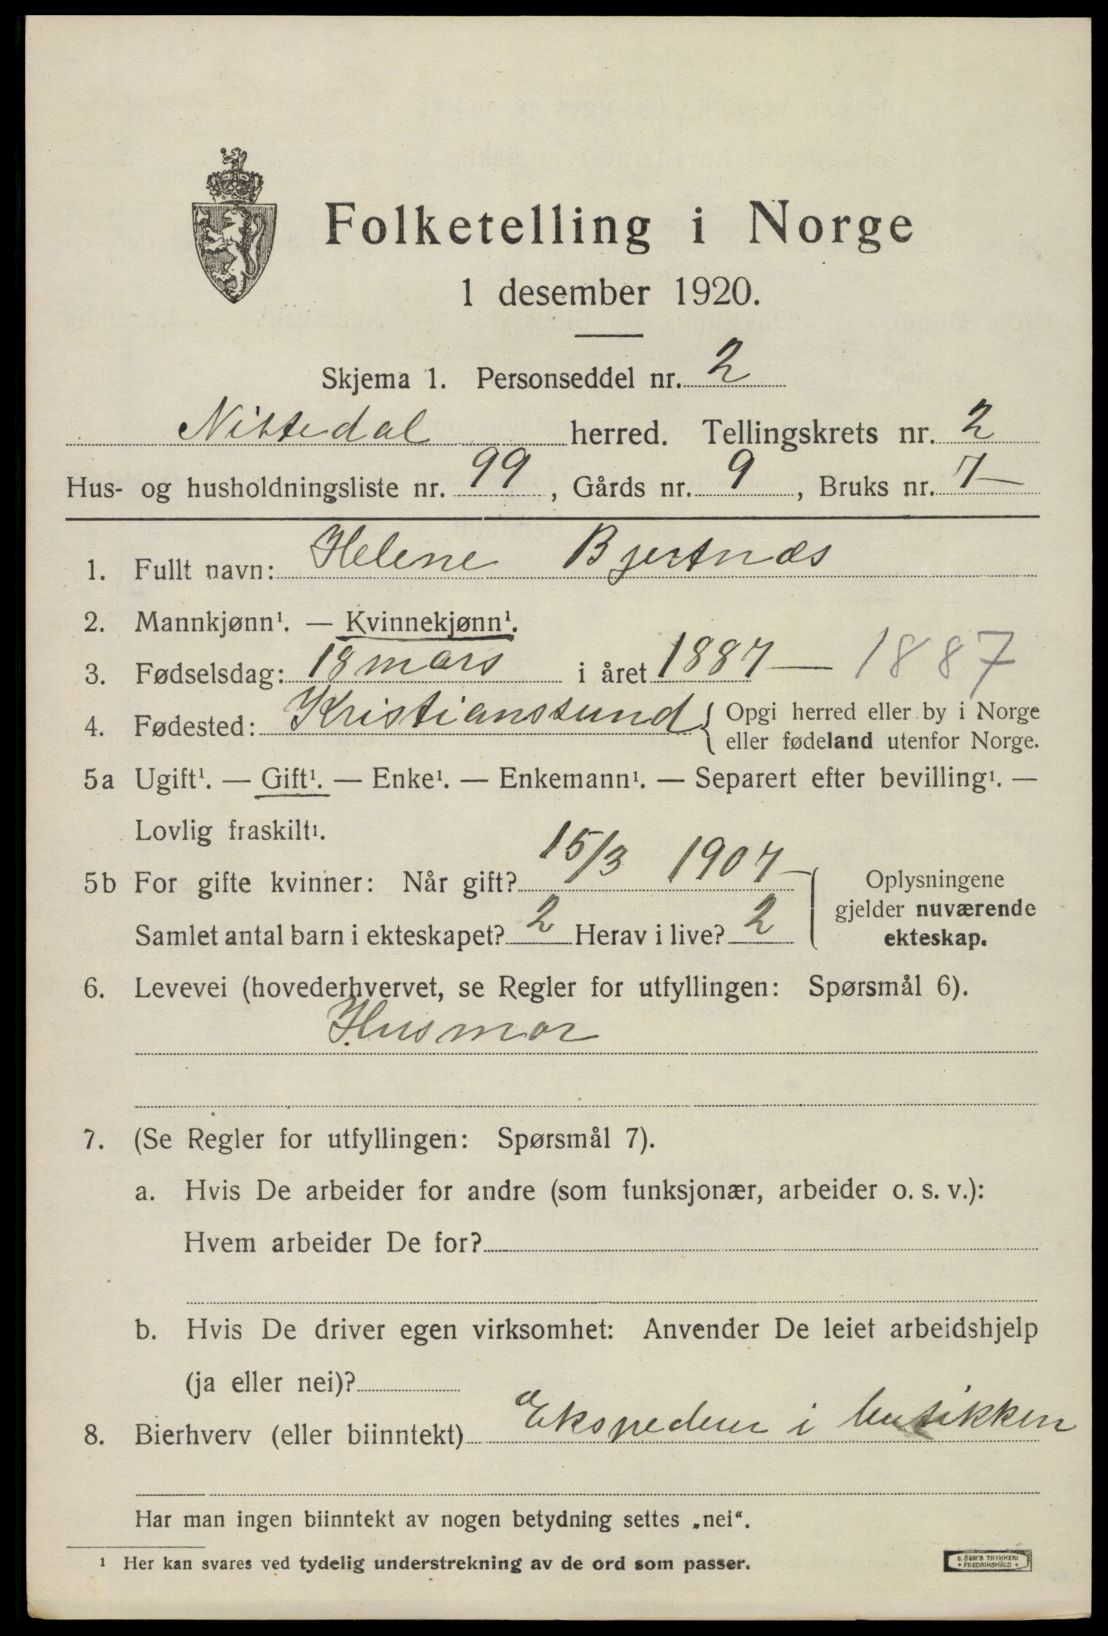 Folketelling i Norge
1 desember 1920.
Skjema 1. Personseddel nr. 2
Nittedal herred. Tellingskrets nr. 2
Hus- og husholdningsliste nr. 99, Gårds nr. 9, Bruks nr. 7
1. Fullt navn: Helene Bjertnæs
2. Mannkjønn¹. — Kvinnekjønn¹.
3. Fødselsdag: 18 mars i året 1887 — 1887
4. Fødested: Kristianssund { Opgi herred eller by i Norge
eller fødeland utenfor Norge.
5a Ugift¹. — Gift¹. — Enke¹. — Enkemann¹. — Separert efter bevilling¹. —
Lovlig fraskilt¹.
5b For gifte kvinner: Når gift? 15/3 1907
Samlet antal barn i ekteskapet? 2 Herav i live? 2
Oplysningene
gjelder nuværende
ekteskap.
6. Levevei (hovederhvervet, se Regler for utfyllingen: Spørsmål 6).
Husmor
7. (Se Regler for utfyllingen: Spørsmål 7).
a. Hvis De arbeider for andre (som funksjonær, arbeider o. s. v.):
Hvem arbeider De for?
b. Hvis De driver egen virksomhet: Anvender De leiet arbeidshjelp
(ja eller nei)?
8. Bierhverv (eller biinntekt) Ekspederer i butikken
Har man ingen biinntekt av nogen betydning settes „nei“.
¹ Her kan svares ved tydelig understrekning av de ord som passer.
E. SEM'S TRYKKERI
• FREDRIKSHALD •